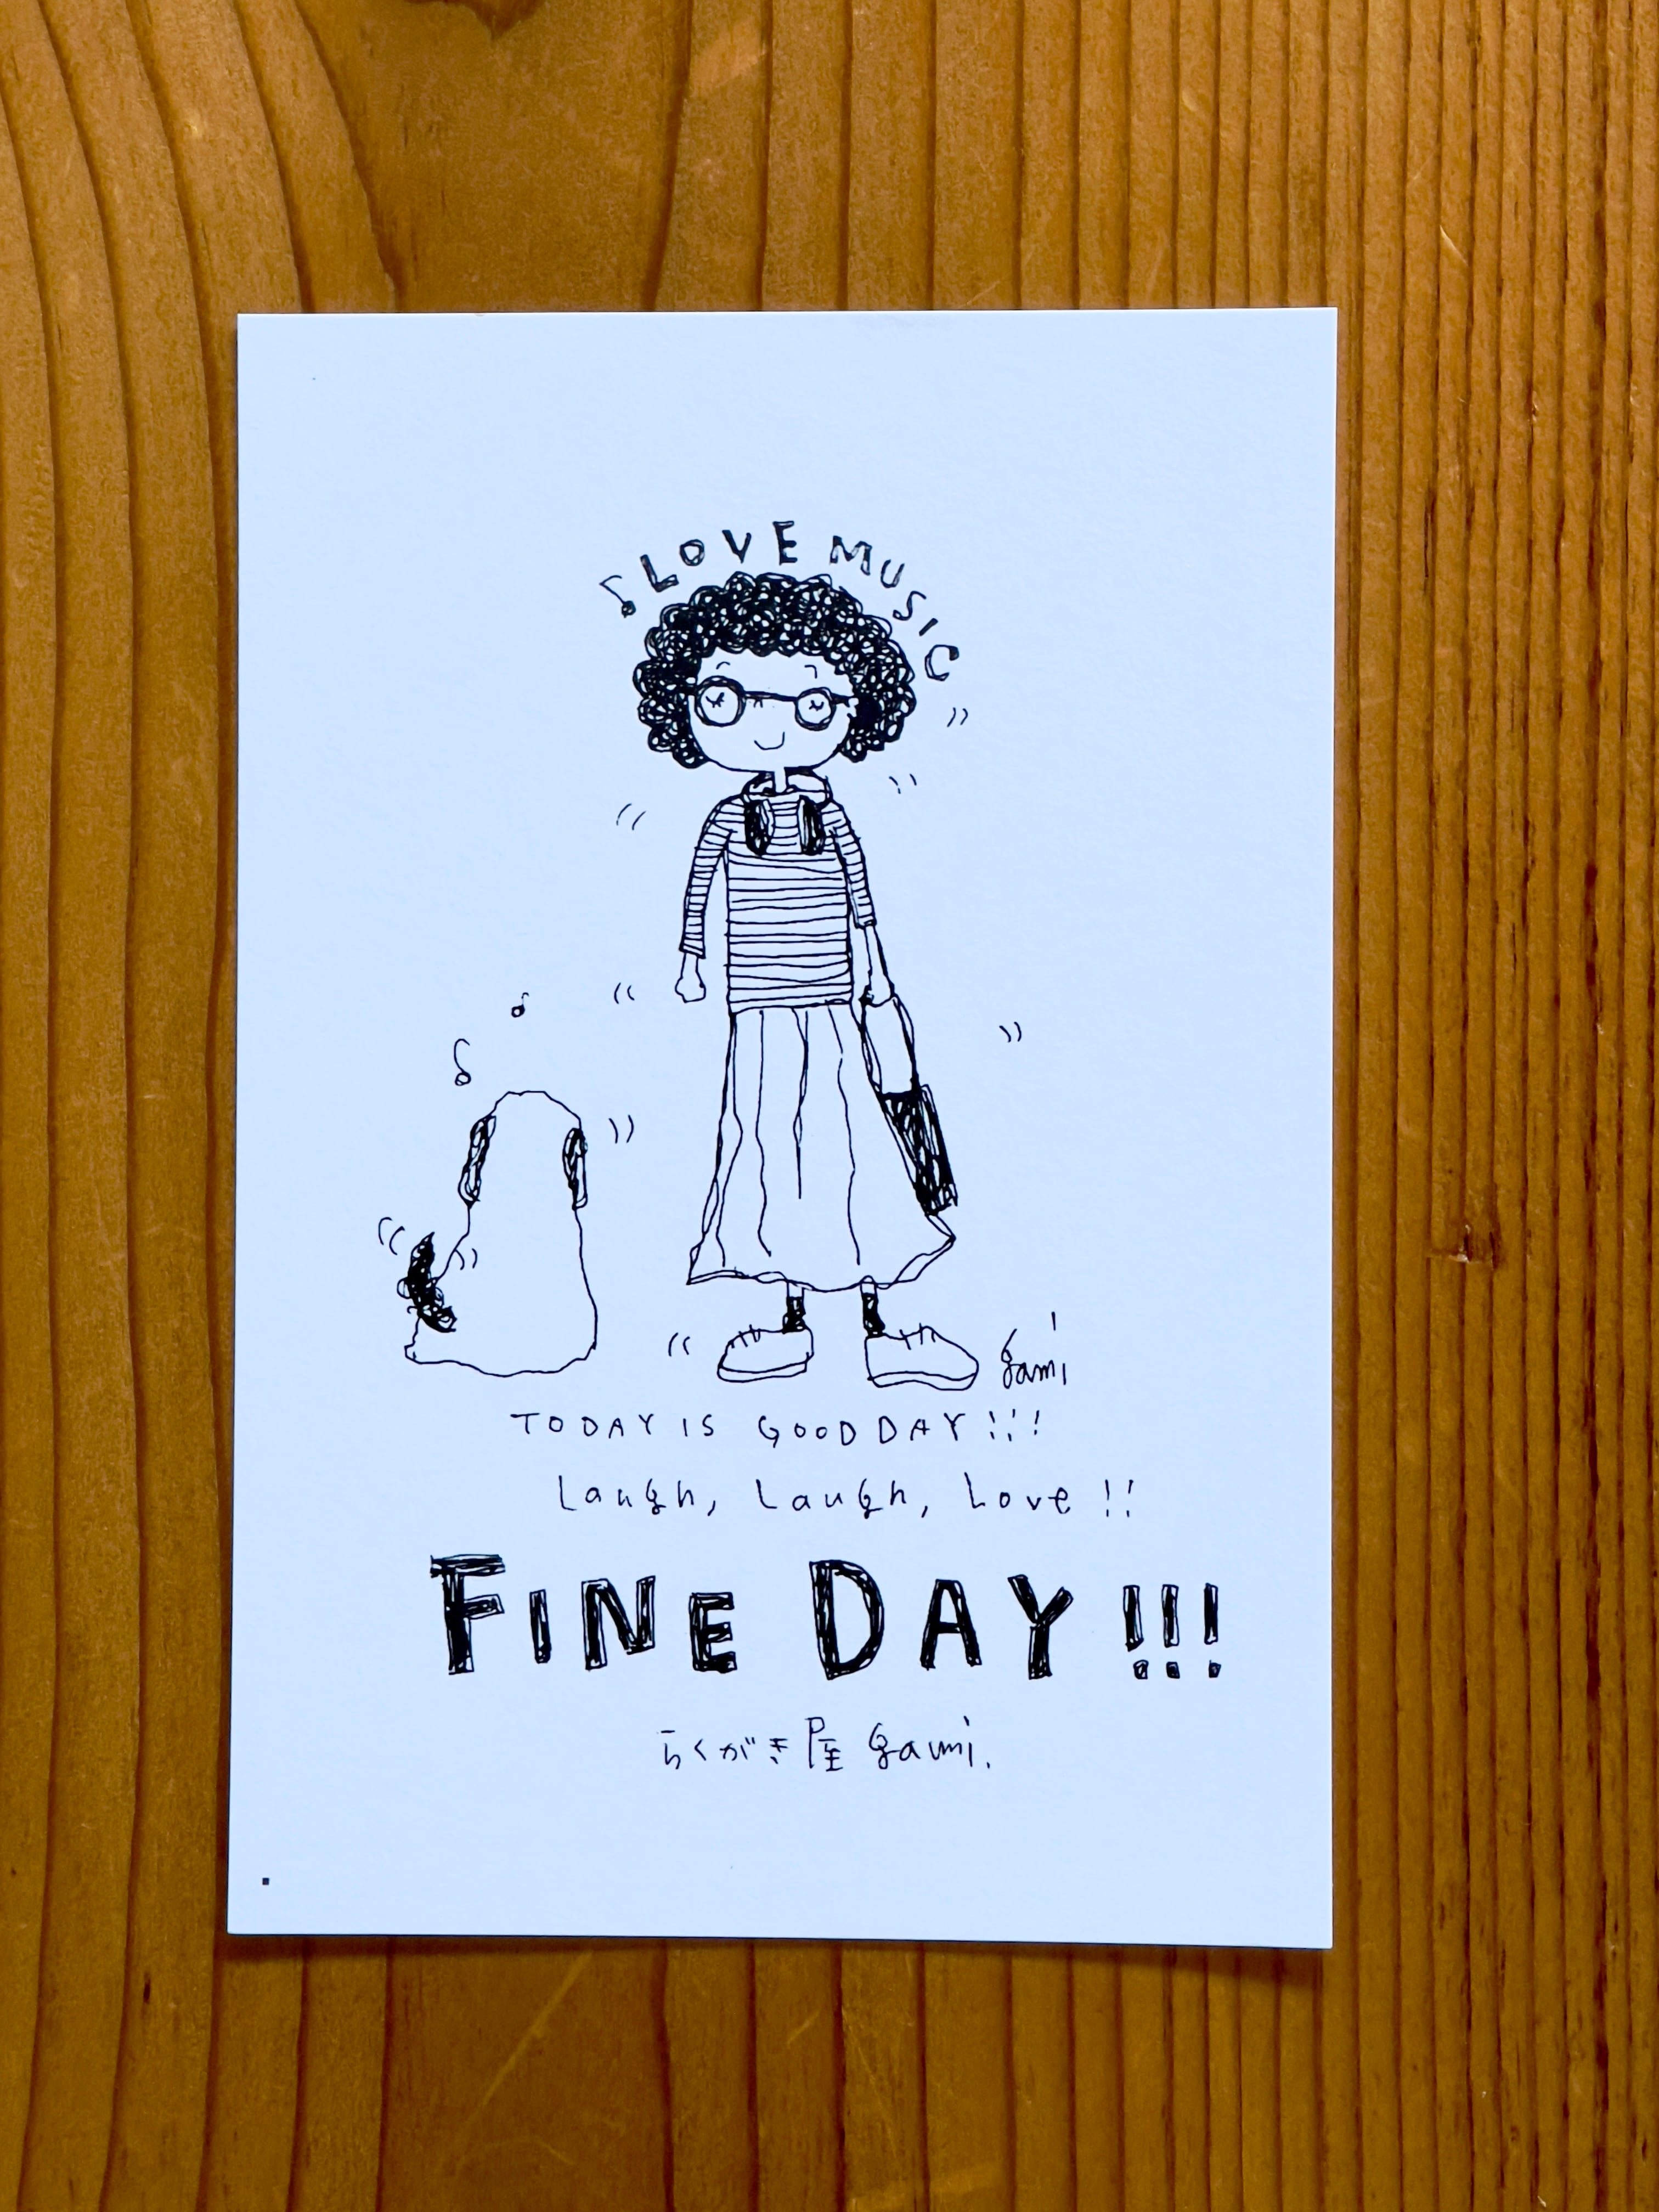 ♪LOVE MUSIC
gami
TODAY IS GOOD DAY!!!
Laugh, Laugh, Love!!
FINE DAY!!!
らくがき座 gami.